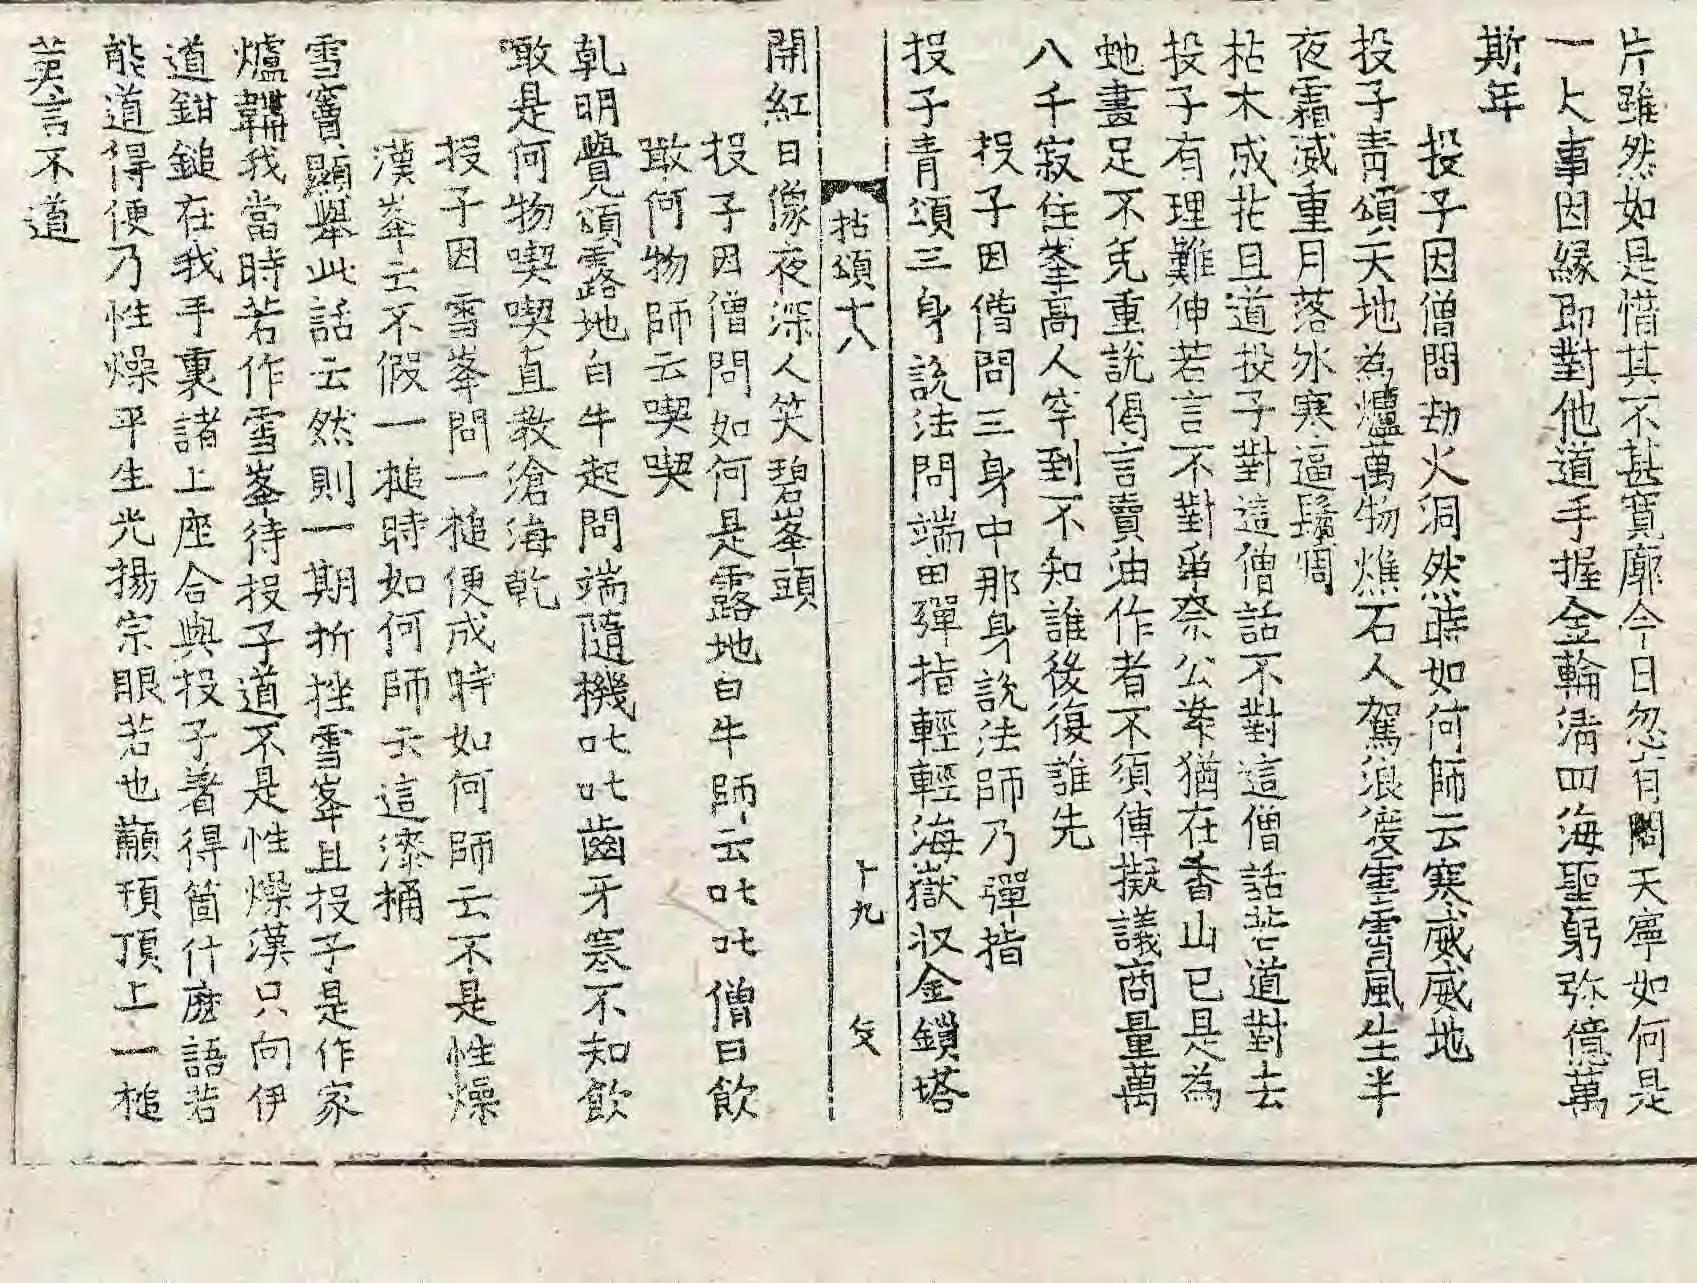 片雖然如是惜其不甚寬廓今日忽有問天寧如何是
一大事因緣即對他道手握金輪清四海聖躬弥億萬
斯年
投子因僧問劫火洞然時如何師云寒威威地
投子青頌天地為爐萬物燋石人駕浪渡雲霄風生半
夜霜威重月落氷寒逼鬢凋
枯木成拈且道投子對這僧話不對這僧話若道對去
投子有理難伸若言不對爭奈公案猶在香山已是為
虵畫足不免重說偈言賣油作者不須傳擬議商量萬
八千寂住峯高人罕到不知誰後復誰先
投子因僧問三身中那身說法師乃彈指
投子青頌三身說法問端由彈指輕輕海嶽収金鎖塔
拈頌十八
十九
開紅日像夜深人笑碧峯頭
投子因僧問如何是露地白牛師云吒吒僧曰飲
噉何物師云喫喫
乹明覺頌露地白牛起問端隨機吒吒齒牙寒不知飲
噉是何物喫喫直教滄海乾
投子因雪峯問一槌便成時如何師云不是性燥
漢峯云不假一槌時如何師云這漆桶
雪竇顯舉此話云然則一期折挫雪峯且投子是作家
爐韛我當時若作雪峯待投子道不是性燥漢只向伊
道鉗鎚在我手裏諸上座合與投子著得箇什麽語若
能道得便乃性燥平生光揚宗眼若也顢頇頂上一槌
莫言不道